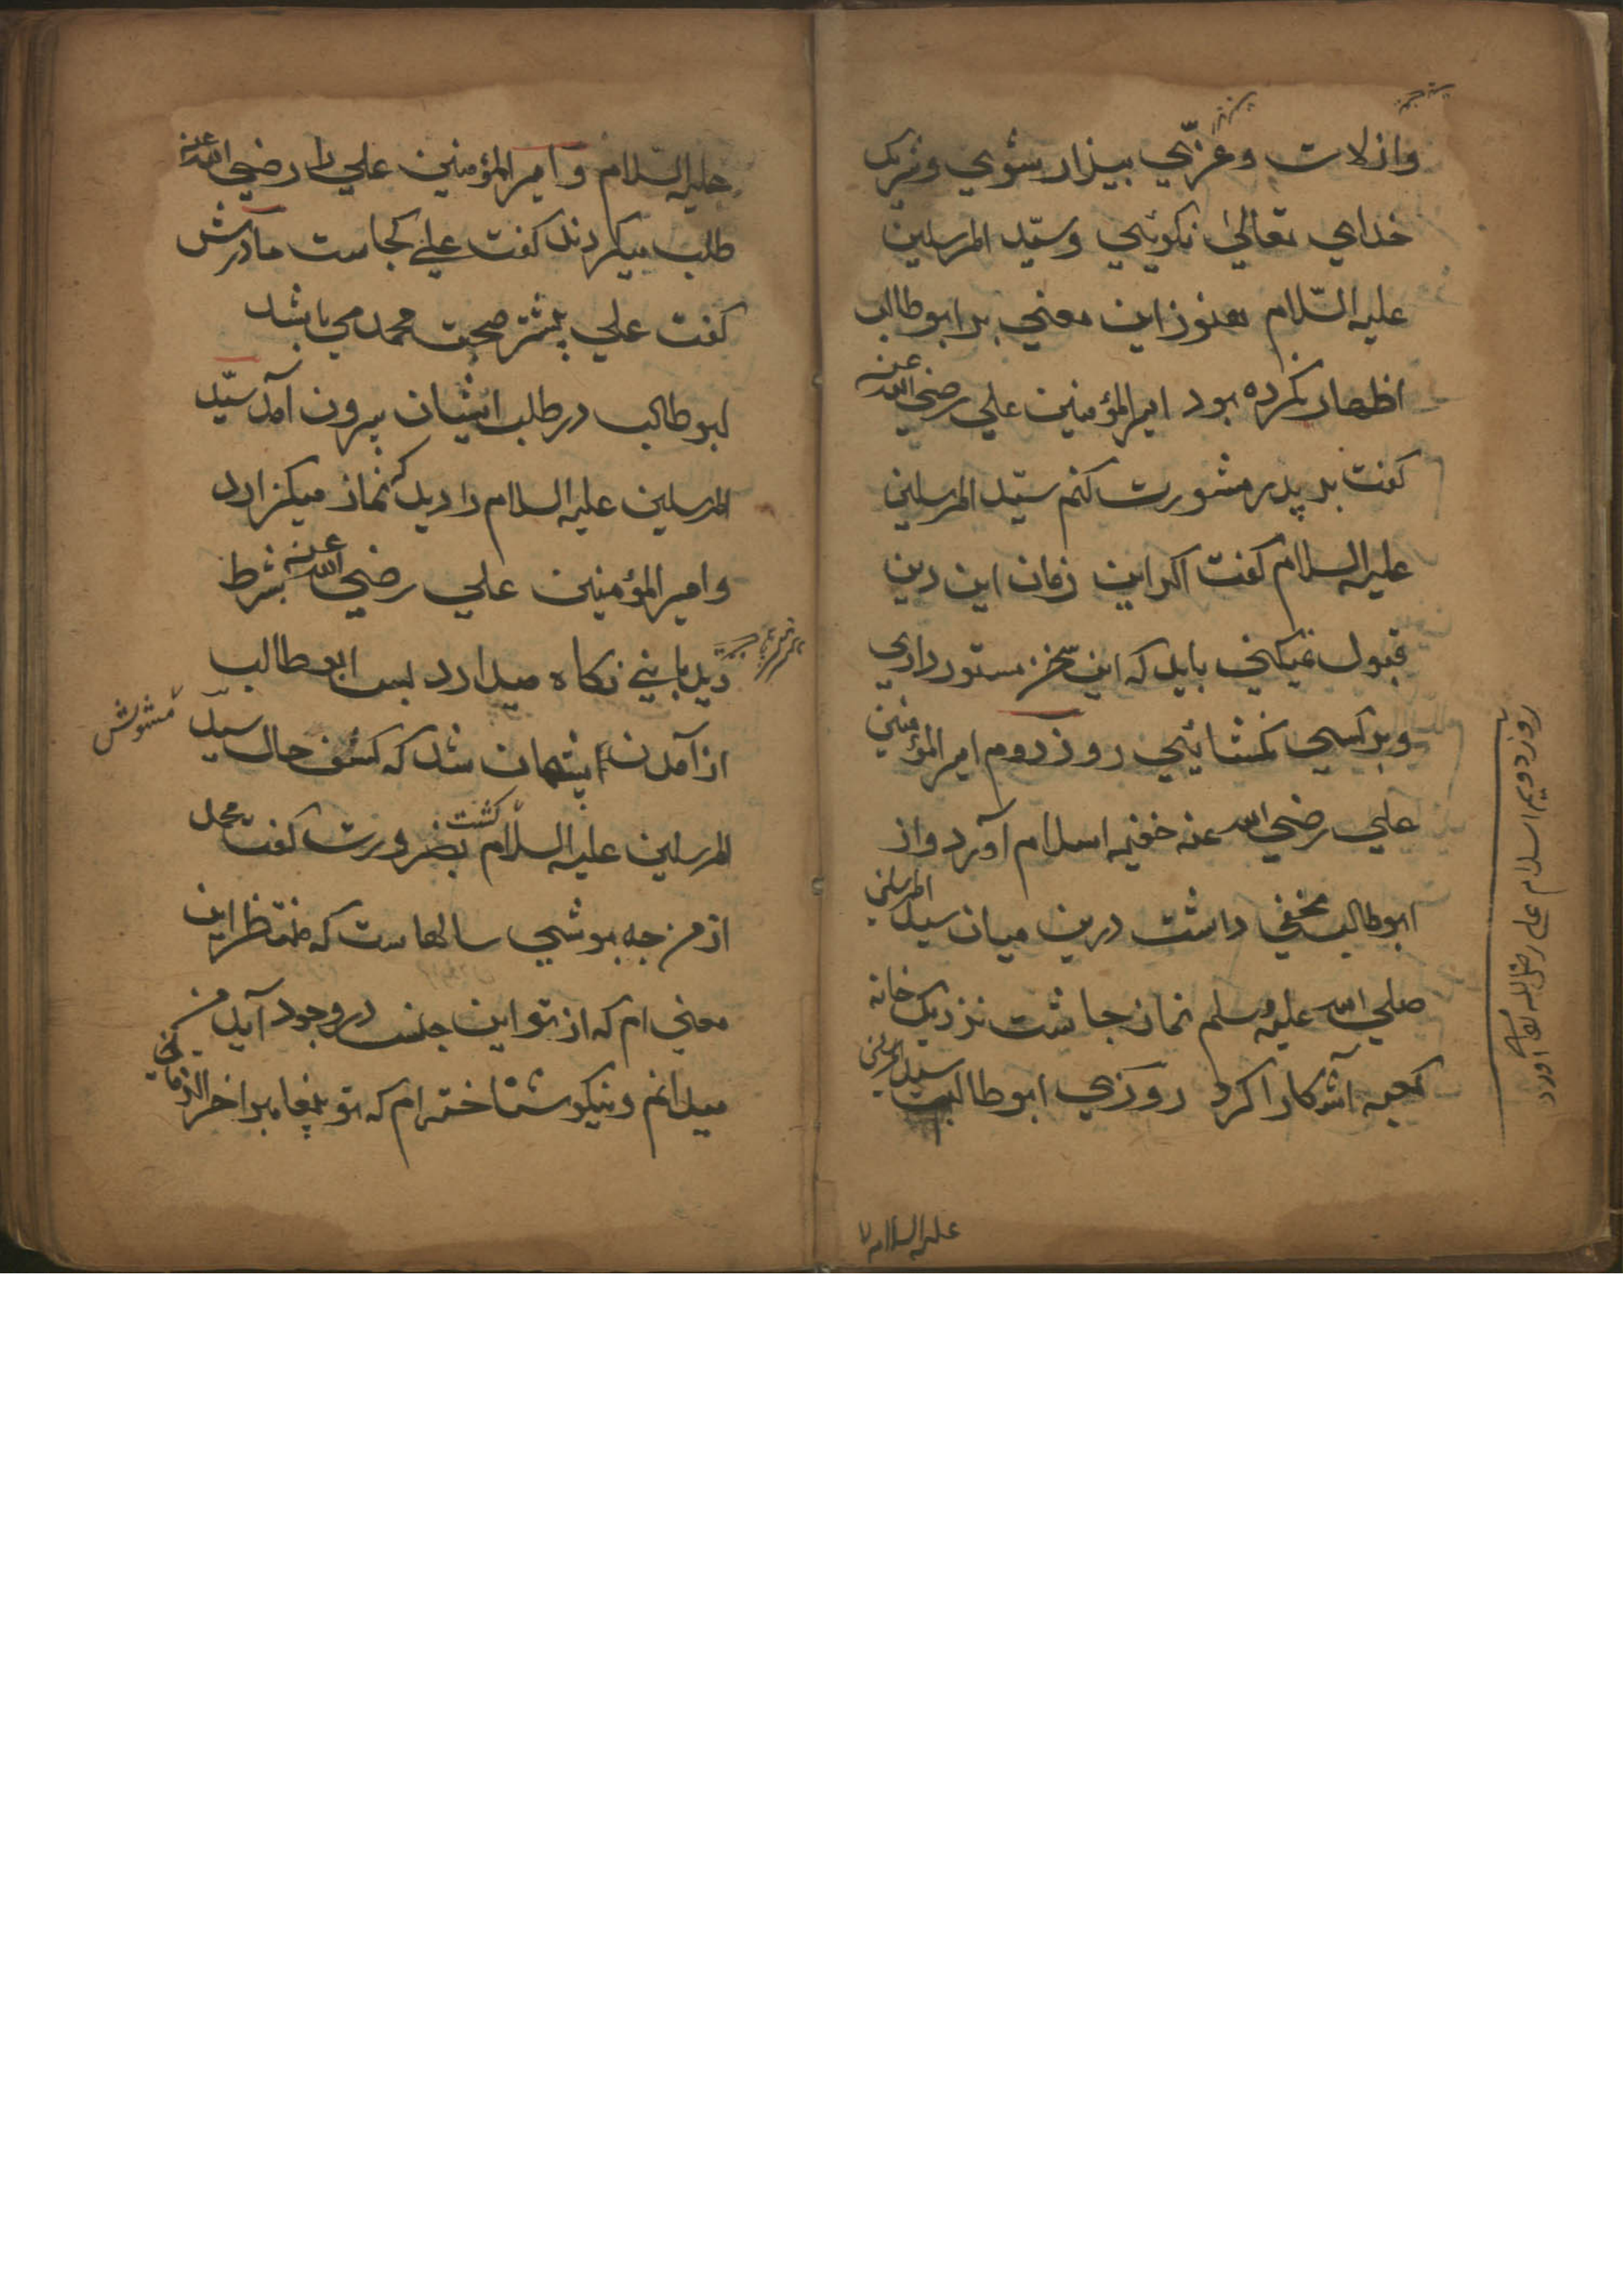 واز لات وعزّي بيزار شوي وشريک
خداي تعالىٰ نکوئي وسيّد المرسلين
عليه السّلام هنوز اين معني بر ابوطالب
اظهار نکرده بود امير المؤمنين علي رضي الله عنه
کفت بر پدر مشورت کنم سيّد المرسلين
عليه السلام کفت اکر اين زمان اين دين
قبول نميکني بايد که اين سخن مستور داري
وبر کسي نکشائي روز دوم امير المؤمنين
علي رضي الله عنه خفيه اسلام آورد واز
ابوطالب مخفي داشت درين ميان سيد المرسلين
صلي الله عليه وسلم نماز جاشت نزديک خانه
کعبه آشکارا کرد روزي ابوطالب سيد المرسلين
عليه السلام
روز دويم اسلام علي رضي الله تعالى آورد
عليه السّلام و امير المؤمنين علي را رضي الله عنه
طلب ميکردند کفت علي کجاست مادرش
کفت علي بيشتر صحبت محمد مي باشد
ابوطالب در طلب ايشان بيرون آمد سيّد
المرسلين عليه السلام را ديد که نماز ميکزارد
وامير المؤمنين علي رضي الله عنه بشرط
ديدباني نکاه ميدارد پس ابوطالب
از آمدن پشيمان شد که کشف حال سيّد
مشوش
المرسلين عليه السلام کشت بضرورت کفت محمد
از من جه پوشي سالهاست که منتظر اين
معني ام که از تو اين جنس در وجود آيد من
ميدانم ونيکو شناخته ام که تو پيغامبر اخر الزماني